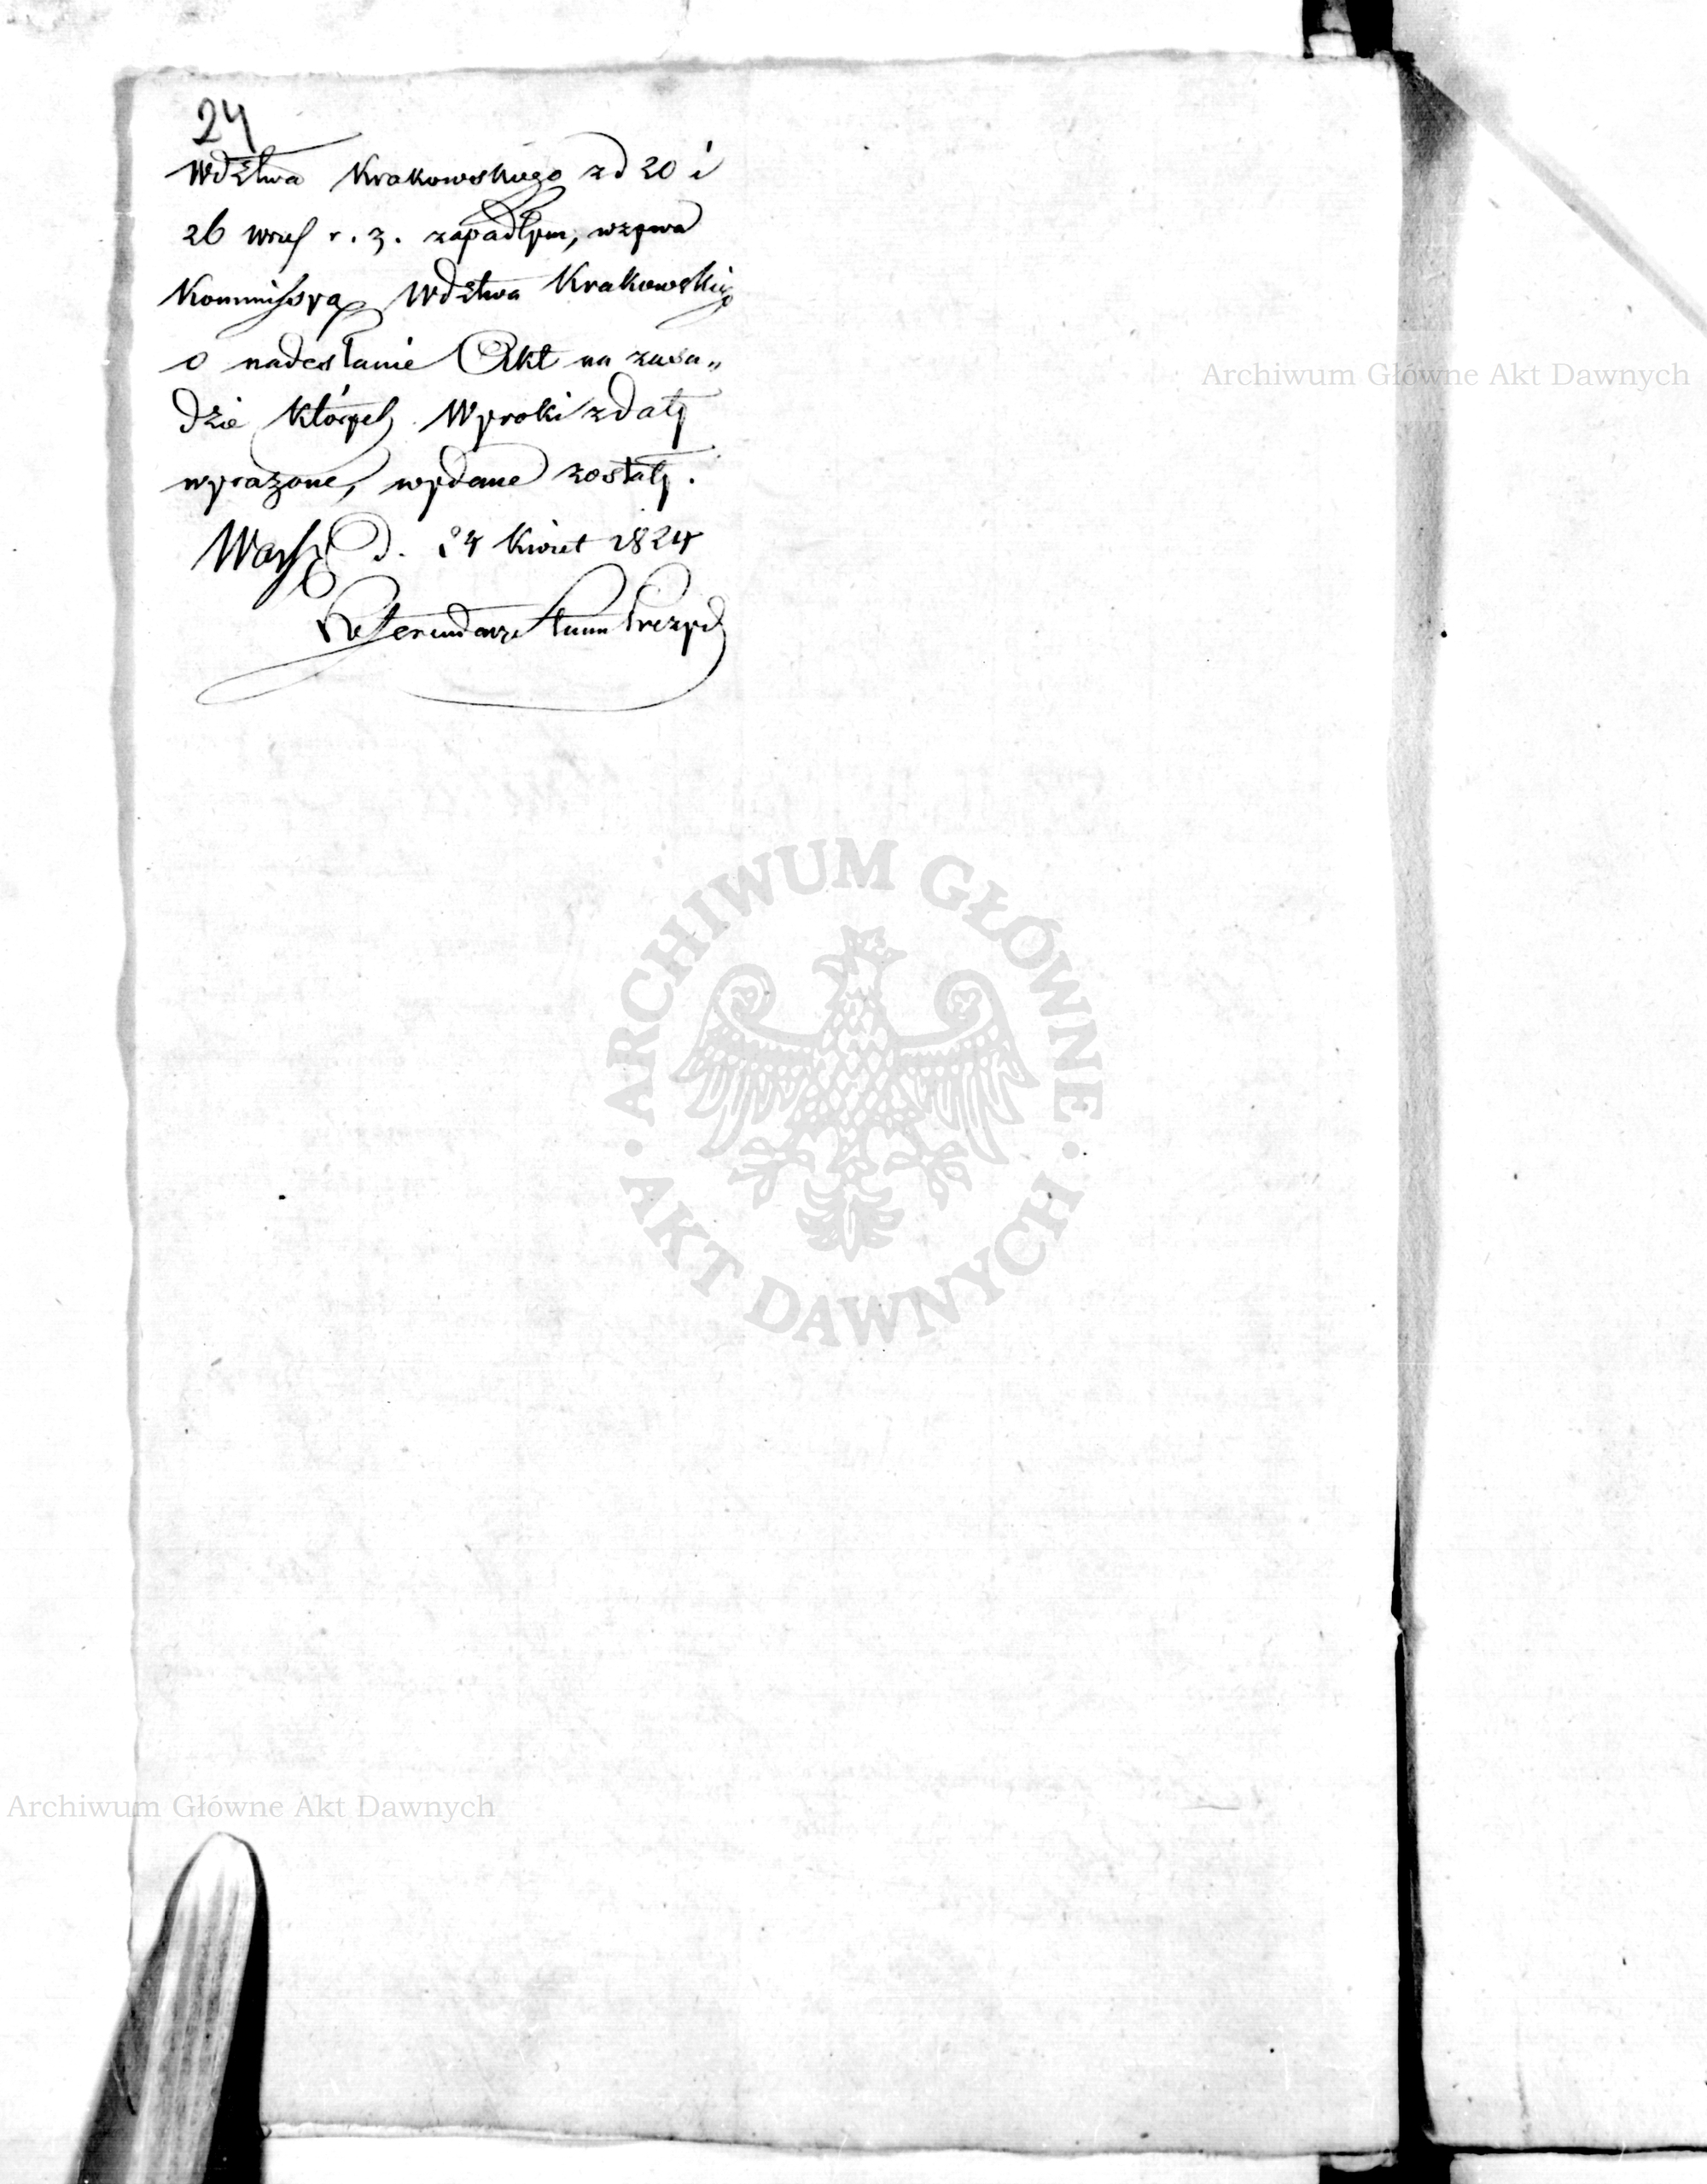 24
Wdztwa Krakowskiego z d 20 i
26 wrześ r. z. zapadłym, wzywa
Kommissyą Wdztwa Krakowskieg
o nadesłanie Akt na zasa„
dzie których Wyroki z daty
wyrażone, wydane zostały.
Warsz d. 24 Kwiet 1824
Referendarz Stanu Prezyd
Archiwum Główne Akt Dawnych
ARCHIWUM GŁÓWNE · AKT DAWNYCH ·
Archiwum Główne Akt Dawnych